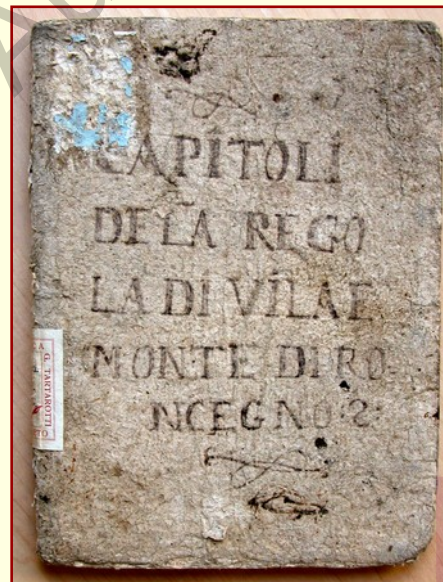 CAPITOLI
DELA REGO
LA DI VILA E
MONTE DI RO
NCEGNO
G. TARTAROTTI